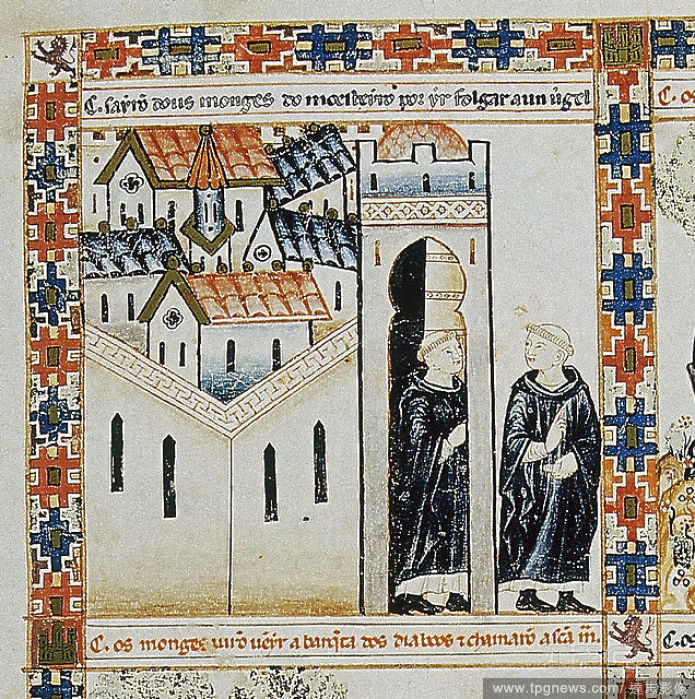 C. sayrō dous monges do moesteiro por yr folgar a un vigel
C. os
C. os monges virō vēir a barq̄ta dos diabōos ⁊ chamarō a scā m̄.
C. o
www.tpgnews.com